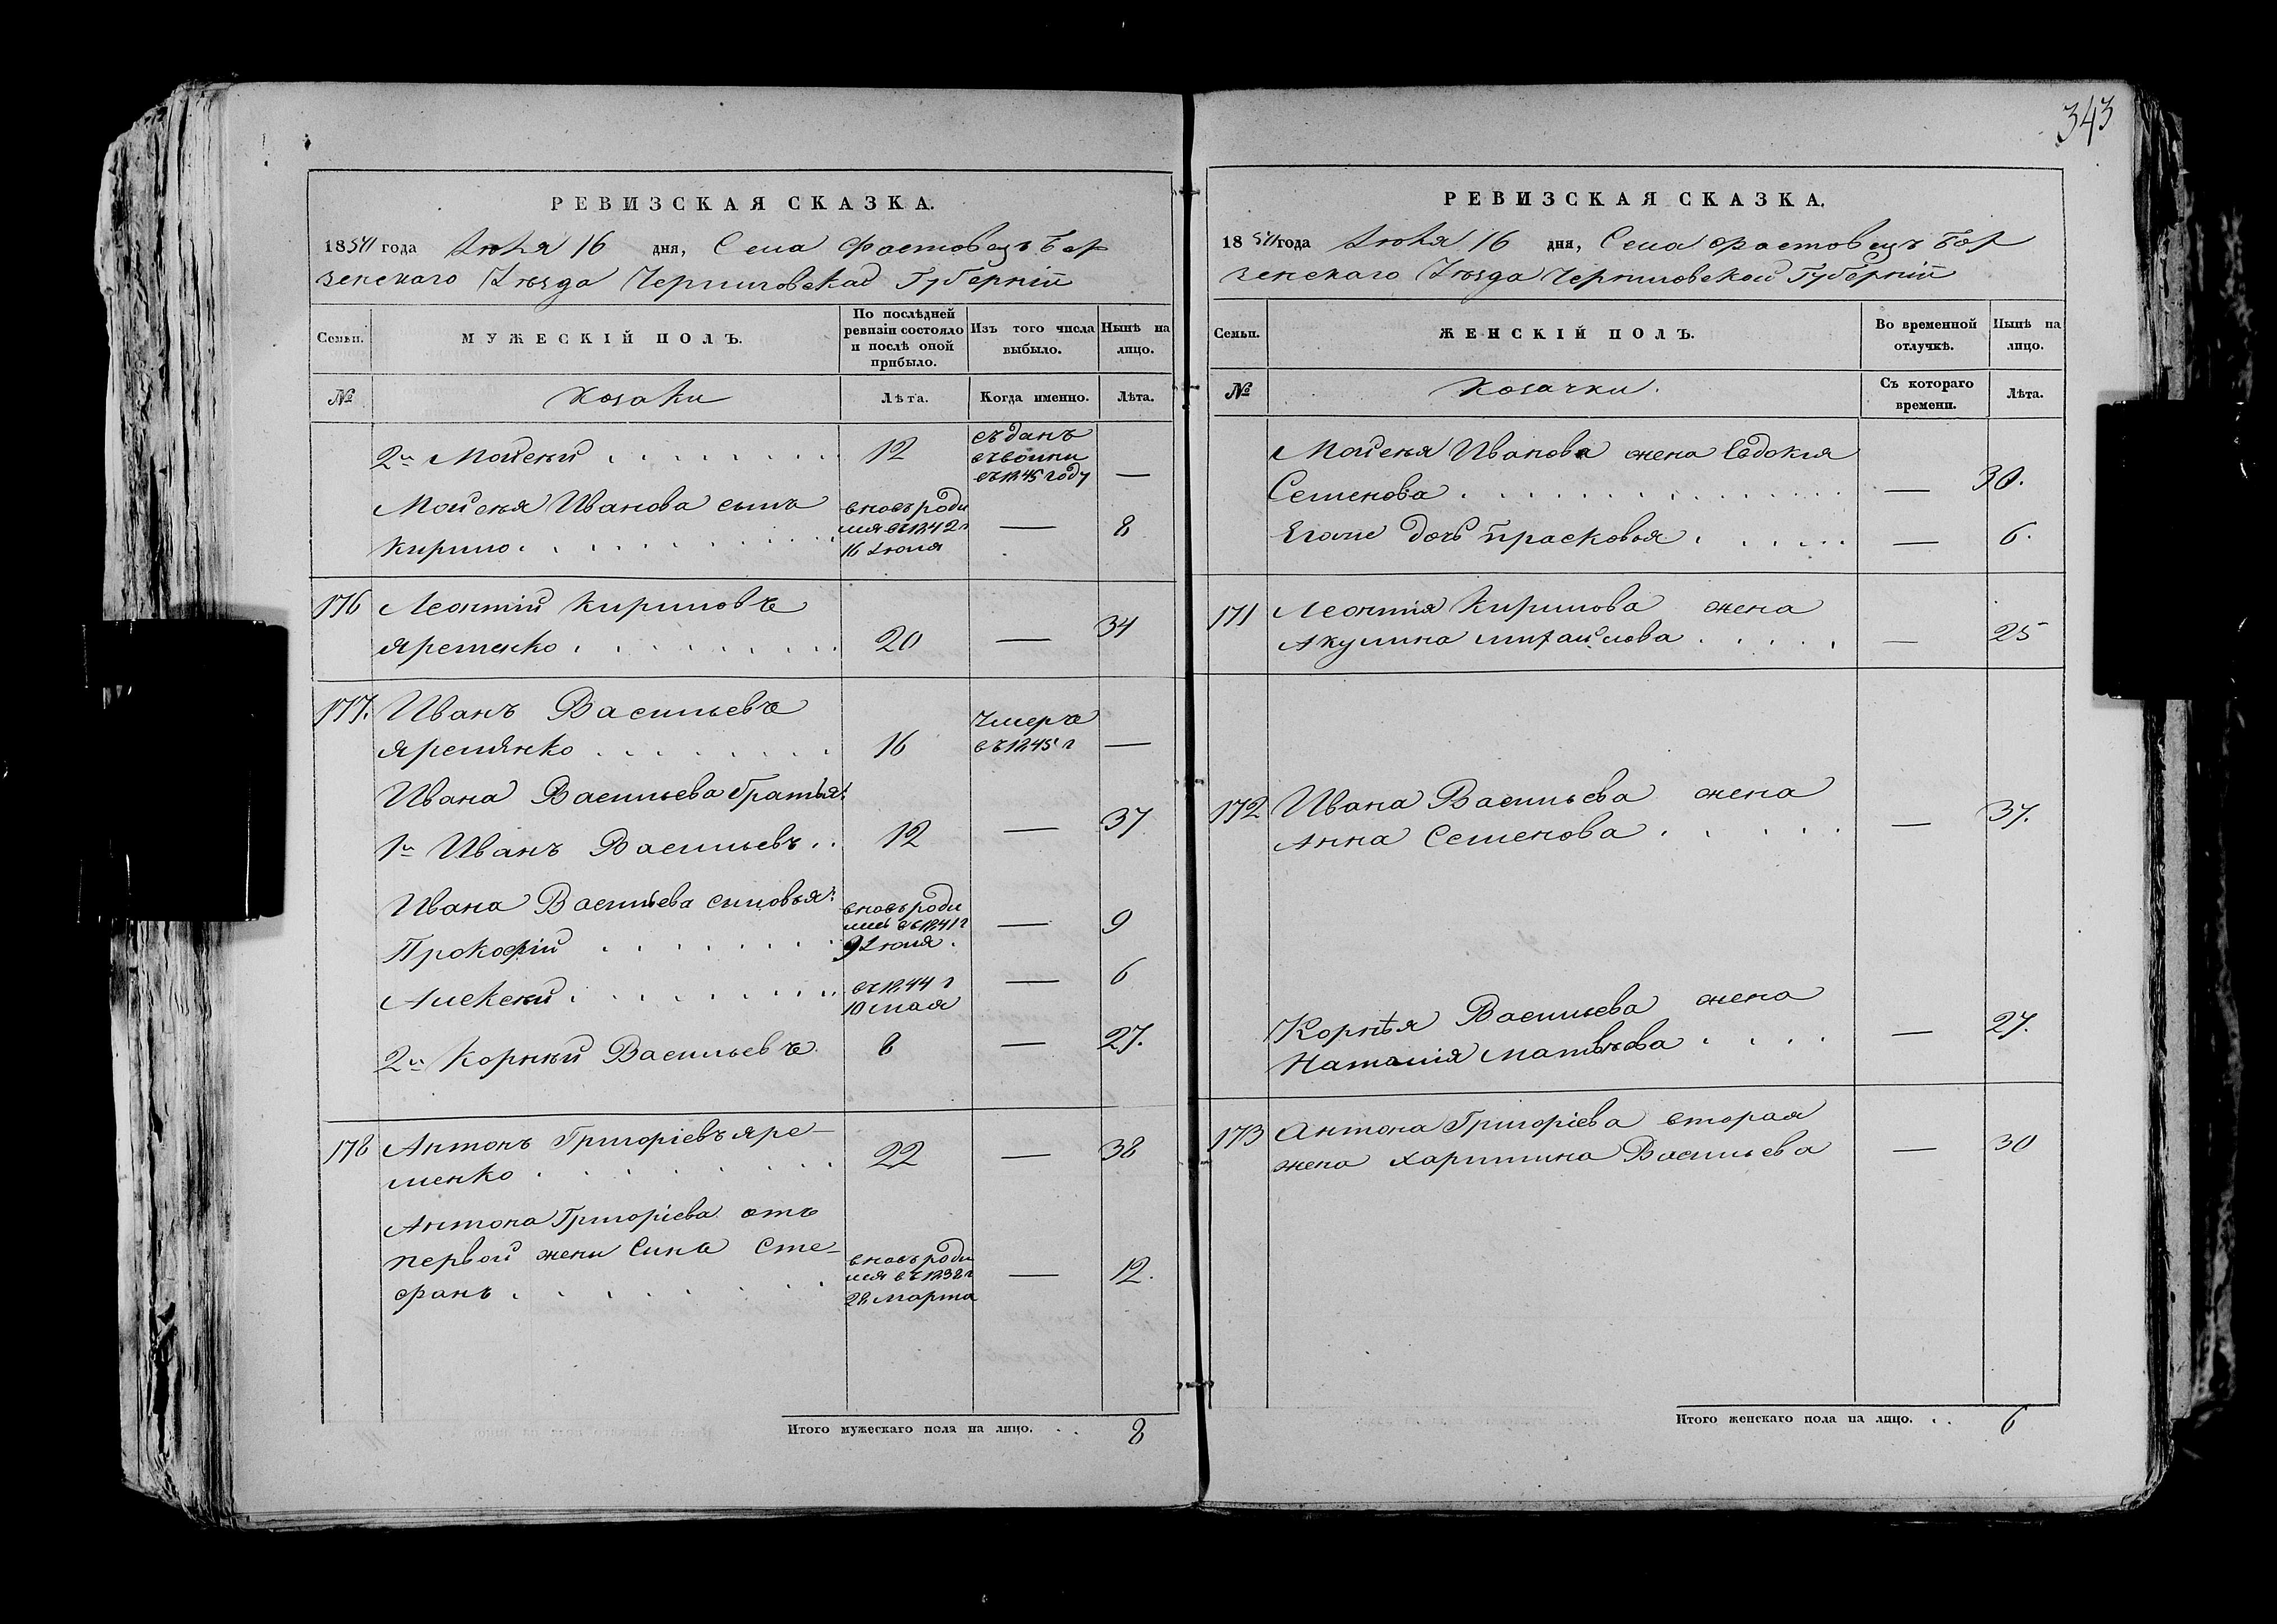 343
РЕВИЗСКАЯ СКАЗКА.
1850 года Июня 16 дня, Села Фастовецъ Бор
зенскаго Уѣзда Черниговской Губерніи
Семьи.
МУЖЕСКІЙ ПОЛЪ.
По послѣдней ревизіи состояло и послѣ оной прибыло.
Изъ того числа выбыло.
Нынѣ на лицо.
№
Козаки
Лѣта.
Когда именно.
Лѣта.
2й Мойсѣй 12 съданъ въвоины въ1845 году —
Мойсѣя Иванова сынъ
Кирило вновьроди лся въ1842 г 16 Июля — 8
176 Леонтій Кириловъ
Яременко 20 — 34
177. Иванъ Васильевъ
Яременко 16 Умеръ въ1845 г —
Ивана Васильева братья:
1й Иванъ Васильевъ 12 — 37
Ивана Васильева сыновья:
Прокофій вновьроди лись въ1841 г 9 Июля — 9
Алексѣй въ1844 г 10 мая — 6
2й Корнѣй Васильевъ 8 — 27.
178 Антонъ Григоріевъ Яре-
менко 22 — 38
Антона Григоріева отъ
первой жены Сина Сте-
фанъ вновьроди лся въ1838 г 28 Марта — 12.
Итого мужескаго пола на лицо. 8
РЕВИЗСКАЯ СКАЗКА.
1850 года Июня 16 дня, Села Фастовецъ Бор
зенскаго Уѣзда Черниговской Губерніи
Семьи.
ЖЕНСКІЙ ПОЛЪ.
Во временной отлучкѣ.
Нынѣ на лицо.
№
Козачки.
Съ котораго времени.
Лѣта.
Мойсѣя Иванова жена Евдокия
Семенова — 30.
Егоже дочь Прасковья — 6.
171 Леонтія Кирилова жена
Акулина Михайлова — 25
172 Ивана Васильева жена
Анна Семенова — 37.
Корнѣя Васильева жена
Наталія Матвѣева — 27.
173 Антона Григоріева вторая
жена Харитина Васильева — 30
Итого женскаго пола на лицо. 6